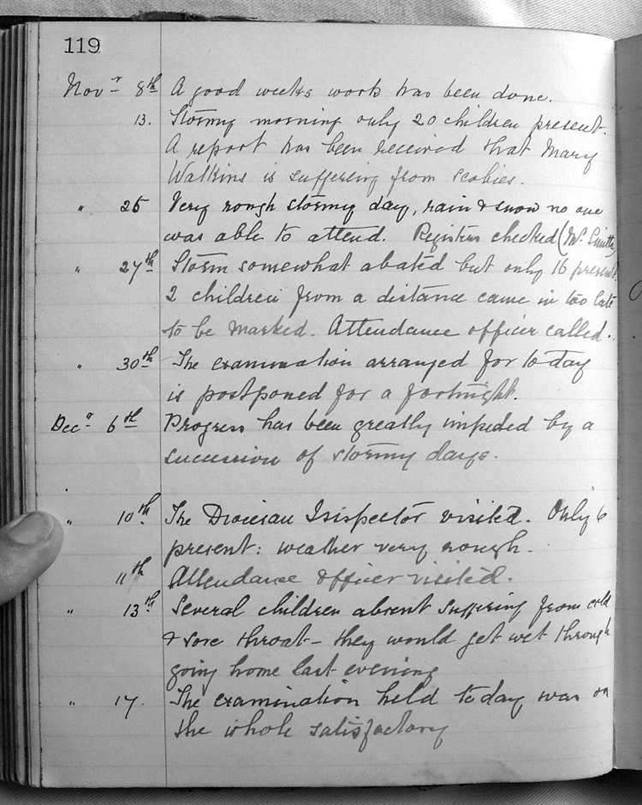 119
Novr 8th A good weeks work has been done.
13. Stormy morning only 20 children present.
A report has been received that Mary
Watkins is suffering from scabies.
" 25 Very rough stormy day, rain & snow no one
was able to attend. Registers checked (Mr.
" 27th Storm somewhat abated but only 16 present
2 children from a distance came in too late
to be marked. Attendance officer called.
" 30th The examination arranged for to day
is postponed for a fortnight.
Decr 6th Progress has been greatly impeded by a
succession of stormy days.
" 10th The Diocesan Inspector visited. Only 6
present: weather very rough.
11th Attendance Officer visited.
" 13th Several children absent suffering from cold
& sore throat - they would get wet through
going home last evening
" 17. The examination held today was on
the whole satisfactory